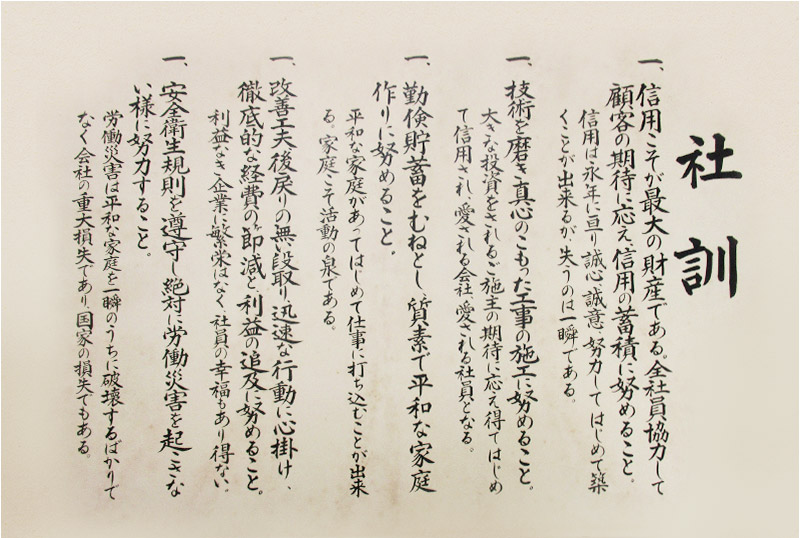 社訓
一、信用こそが最大の財産である。全社員協力して
顧客の期待に応え、信用の蓄積に努めること。
信用は永年に亘り誠心誠意努力してはじめて築
くことが出来るが、失うのは一瞬である。
一、技術を磨き真心のこもった工事の施工に努めること。
大きな投資をされるご施主の期待に応え得てはじめ
て信用され、愛される会社、愛される社員となる。
一、勤倹貯蓄をむねとし、質素で平和な家庭
作りに努めること。
平和な家庭があってはじめて仕事に打ち込むことが出来
る。家庭こそ活動の泉である。
一、改善工夫、後戻りの無い段取り、迅速な行動に心掛け、
徹底的な経費の節減と利益の追及に努めること。
利益なき企業に繁栄はなく、社員の幸福もあり得ない。
一、安全衛生規則を遵守し絶対に労働災害を起こさな
い様に努力すること。
労働災害は平和な家庭を一瞬のうちに破壊するばかりで
なく会社の重大損失であり、国家の損失でもある。